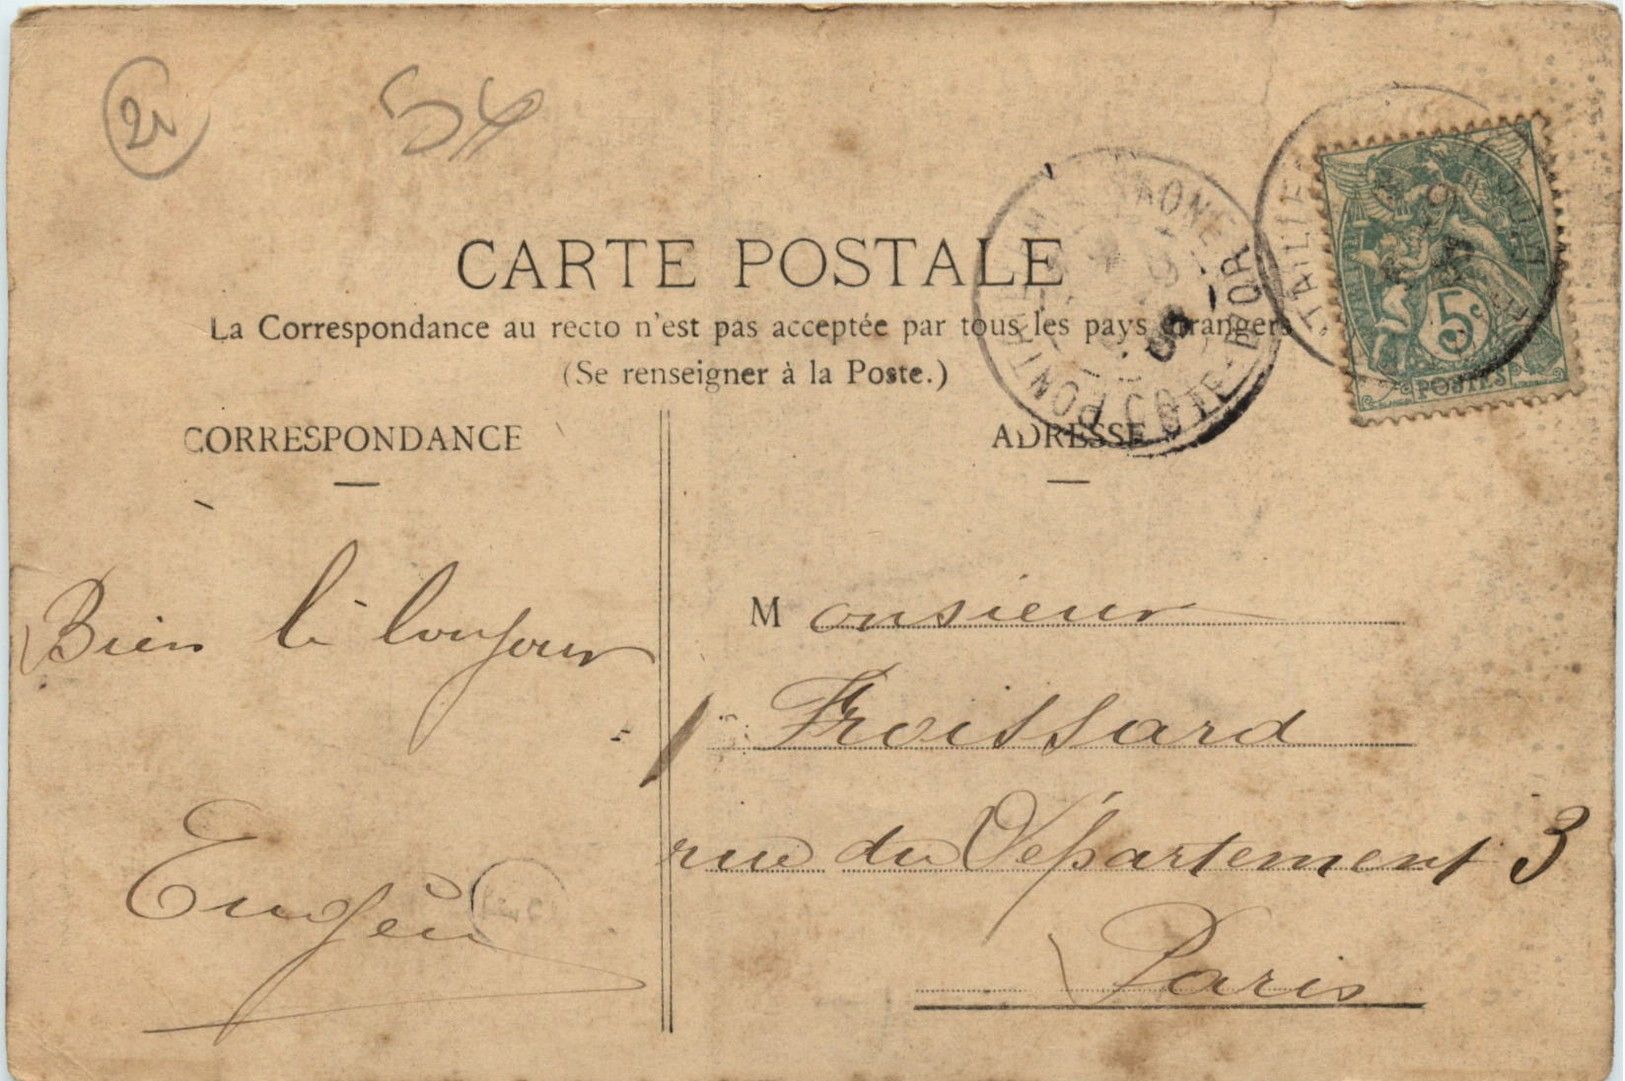 21
54
CARTE POSTALE
La Correspondance au recto n'est pas acceptée par tous les pays étrangers
(Se renseigner à la Poste.)
CORRESPONDANCE
ADRESSE
CÔTE-D'OR
5c
POSTES
Bien le bonjour
Eugène
Monsieur
Froissard
rue du Département 3
Paris